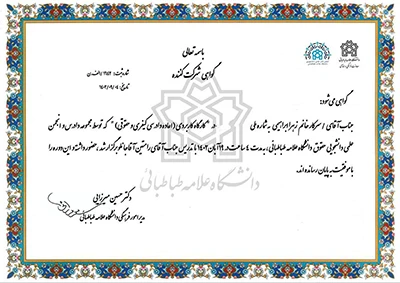 باسمه تعالی
گواهی شرکت کننده
گواهی می شود:
جناب آقای / سرکار خانم زهرا ابراهیمی به شماره ملی در "کارگاه کاربردی (اعاده دادرسی کیفری و حقوقی)" که توسط مجموعه دادرس و انجمن
علمی دانشجویی حقوق دانشگاه علامه طباطبائی، به مدت ٤ ساعت در آبان ١٤٠٢ با تدریس جناب آقای رامتین آقاجانلو برگزار شد، حضور داشته و این دوره را
با موفقیت به پایان رسانده اند.
دانشگاه علامه طباطبائی
دکتر حسین میرزایی
مدیر امور فرهنگی دانشگاه علامه طباطبائی